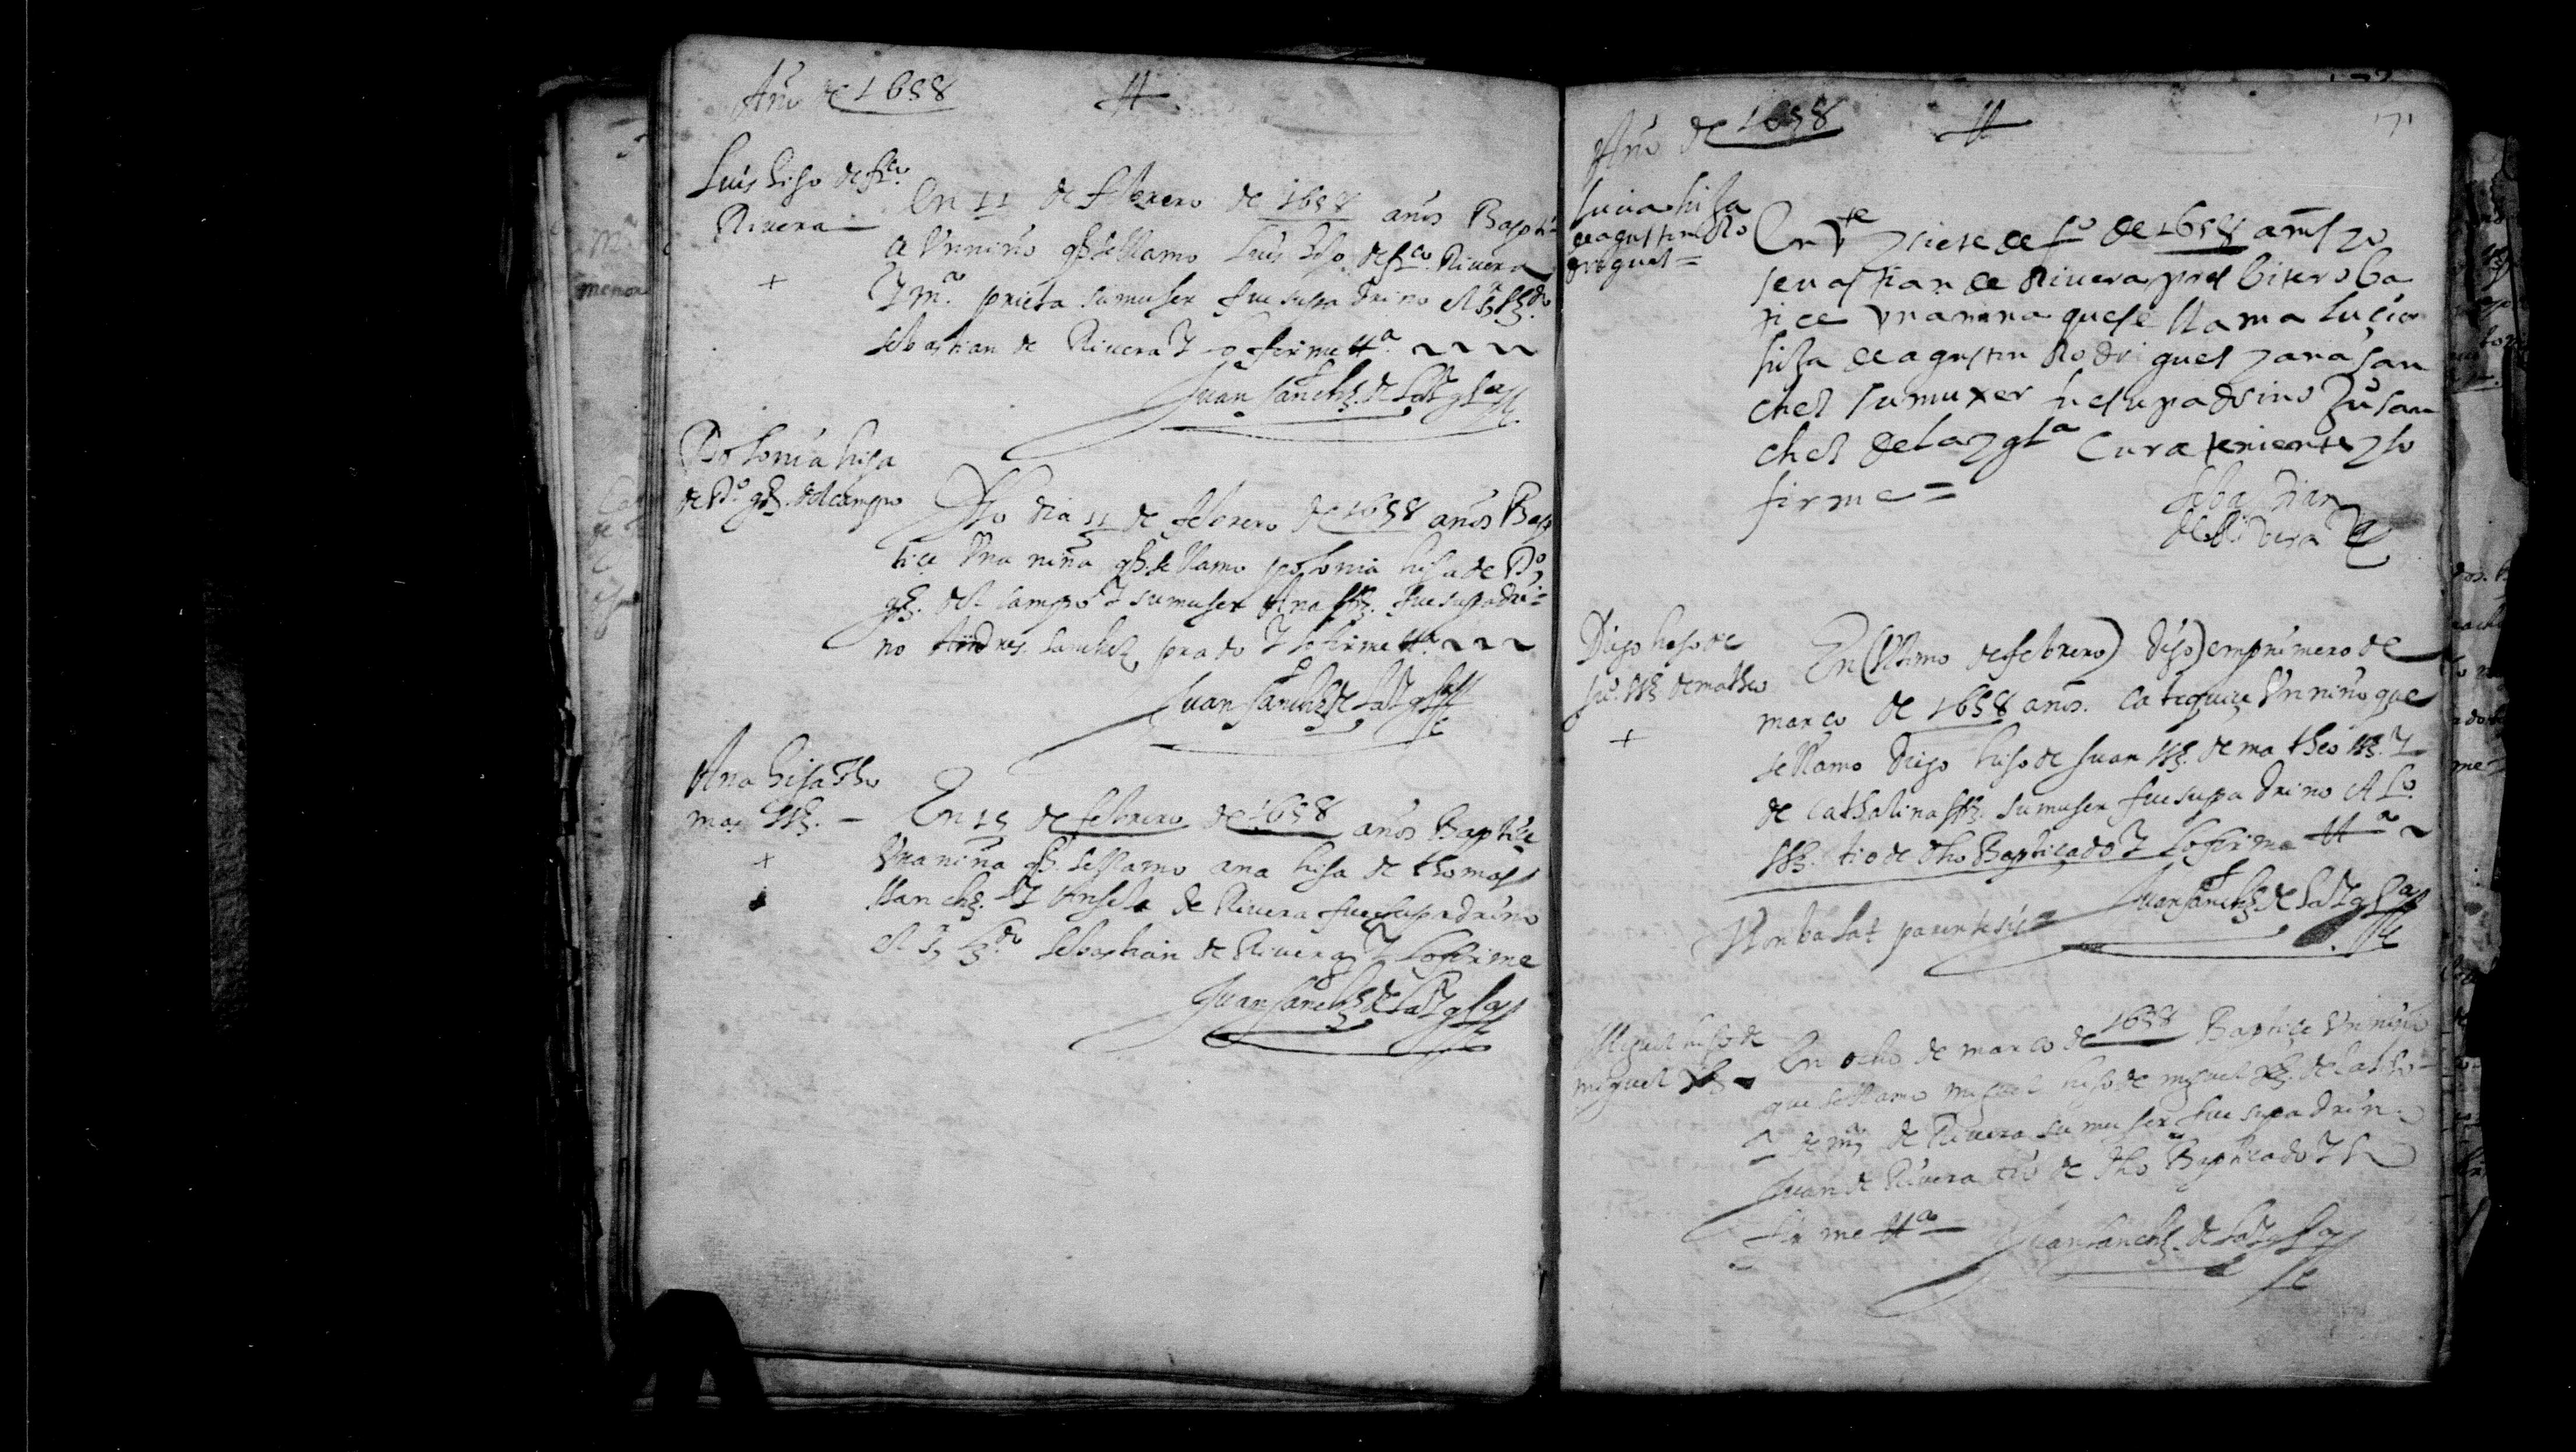 Año de 1658
Luis hijo de fco.
Rivera
En 11 de febrero de 1658 años Bapti-
ce Un niño q se llamo Luis hijo de fco. Rivera
Y ma. prieta su muger fue su padrino el
sebastian de Rivera Y lo firme tta.
Juan sanchz. de la Yglª
Polonia hija
de Po. gz. del campo
Dho dia 11 de febrero de 1658 años Bap
tice Una niña q se llamo polonia hija de Po
gz. del campo Y su muger Ana fue su padri-
no Andres sanchez prado Y lo firme tta.
Juan sanchz de la Yglª
Ana hija Tho
mas
En 15 de febrero de 1658 años Baptice
Una niña q se llamo ana hija de thomas
sanchz. Y Angela de Rivera fue su padrino
el sebastian de Rivera Y lo firme
Juan sanchz de la Yglª
Año de 1658
171
lucia hija
de agustin Ro
driguez =
En vte y siete de fo de 1658 años yo
sevastian de Rivera presbitero ba
tice vna nina que se llama lucia
hija de agustin Rodriguez y ana san
chez su muxer fue su padrino Ju san
chez de la yglª Cura teniente y lo
firme =
Sebastian
de Rivera
Diego hijo de
Ju. de matheo
En (Ultimo de febrero) digo) em primero de
março de 1658 años. Catequice Un niño que
se llamo Diego hijo de Juan de matheo Y
de Cathalina su muger fue su padrino Alo.
tio de dho Bapticado Y lo firme tta
Juan sanchz de la Yglª
Non balat parentesis
Miguel hijo de
miguel
En ocho de março de 1658 Baptice Un niño
que se llamo miguel hijo de miguel
de ma de Rivera su muger fue su padrino
Juan de Rivera tio de dho Bapticado Y lo
firme tta
Juan sanchz. de la Yglª